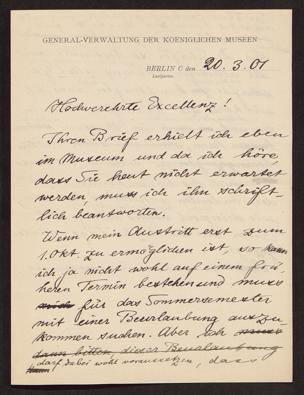 GENERAL-VERWALTUNG DER KOENIGLICHEN MUSEEN
BERLIN C den 20.3.01
Lustgarten.
Hochverehrte Excellenz!
Ihren Brief erhielt ich eben
im Museum und da ich höre,
dass Sie heut nicht erwartet
werden, muss ich ihn schrift-
lich beantworten.
Wenn mein Austritt erst zum
1. Okt. zu ermöglichen ist, so kann
ich ja nicht wohl auf einem frü-
heren Termin bestehen und muss
für das Sommersemester
mit einer Beurlaubung auszu-
kommen suchen. Aber ich muss
dann bitten, dieser Beurlaubung
darf dabei wohl voraussetzen, dass